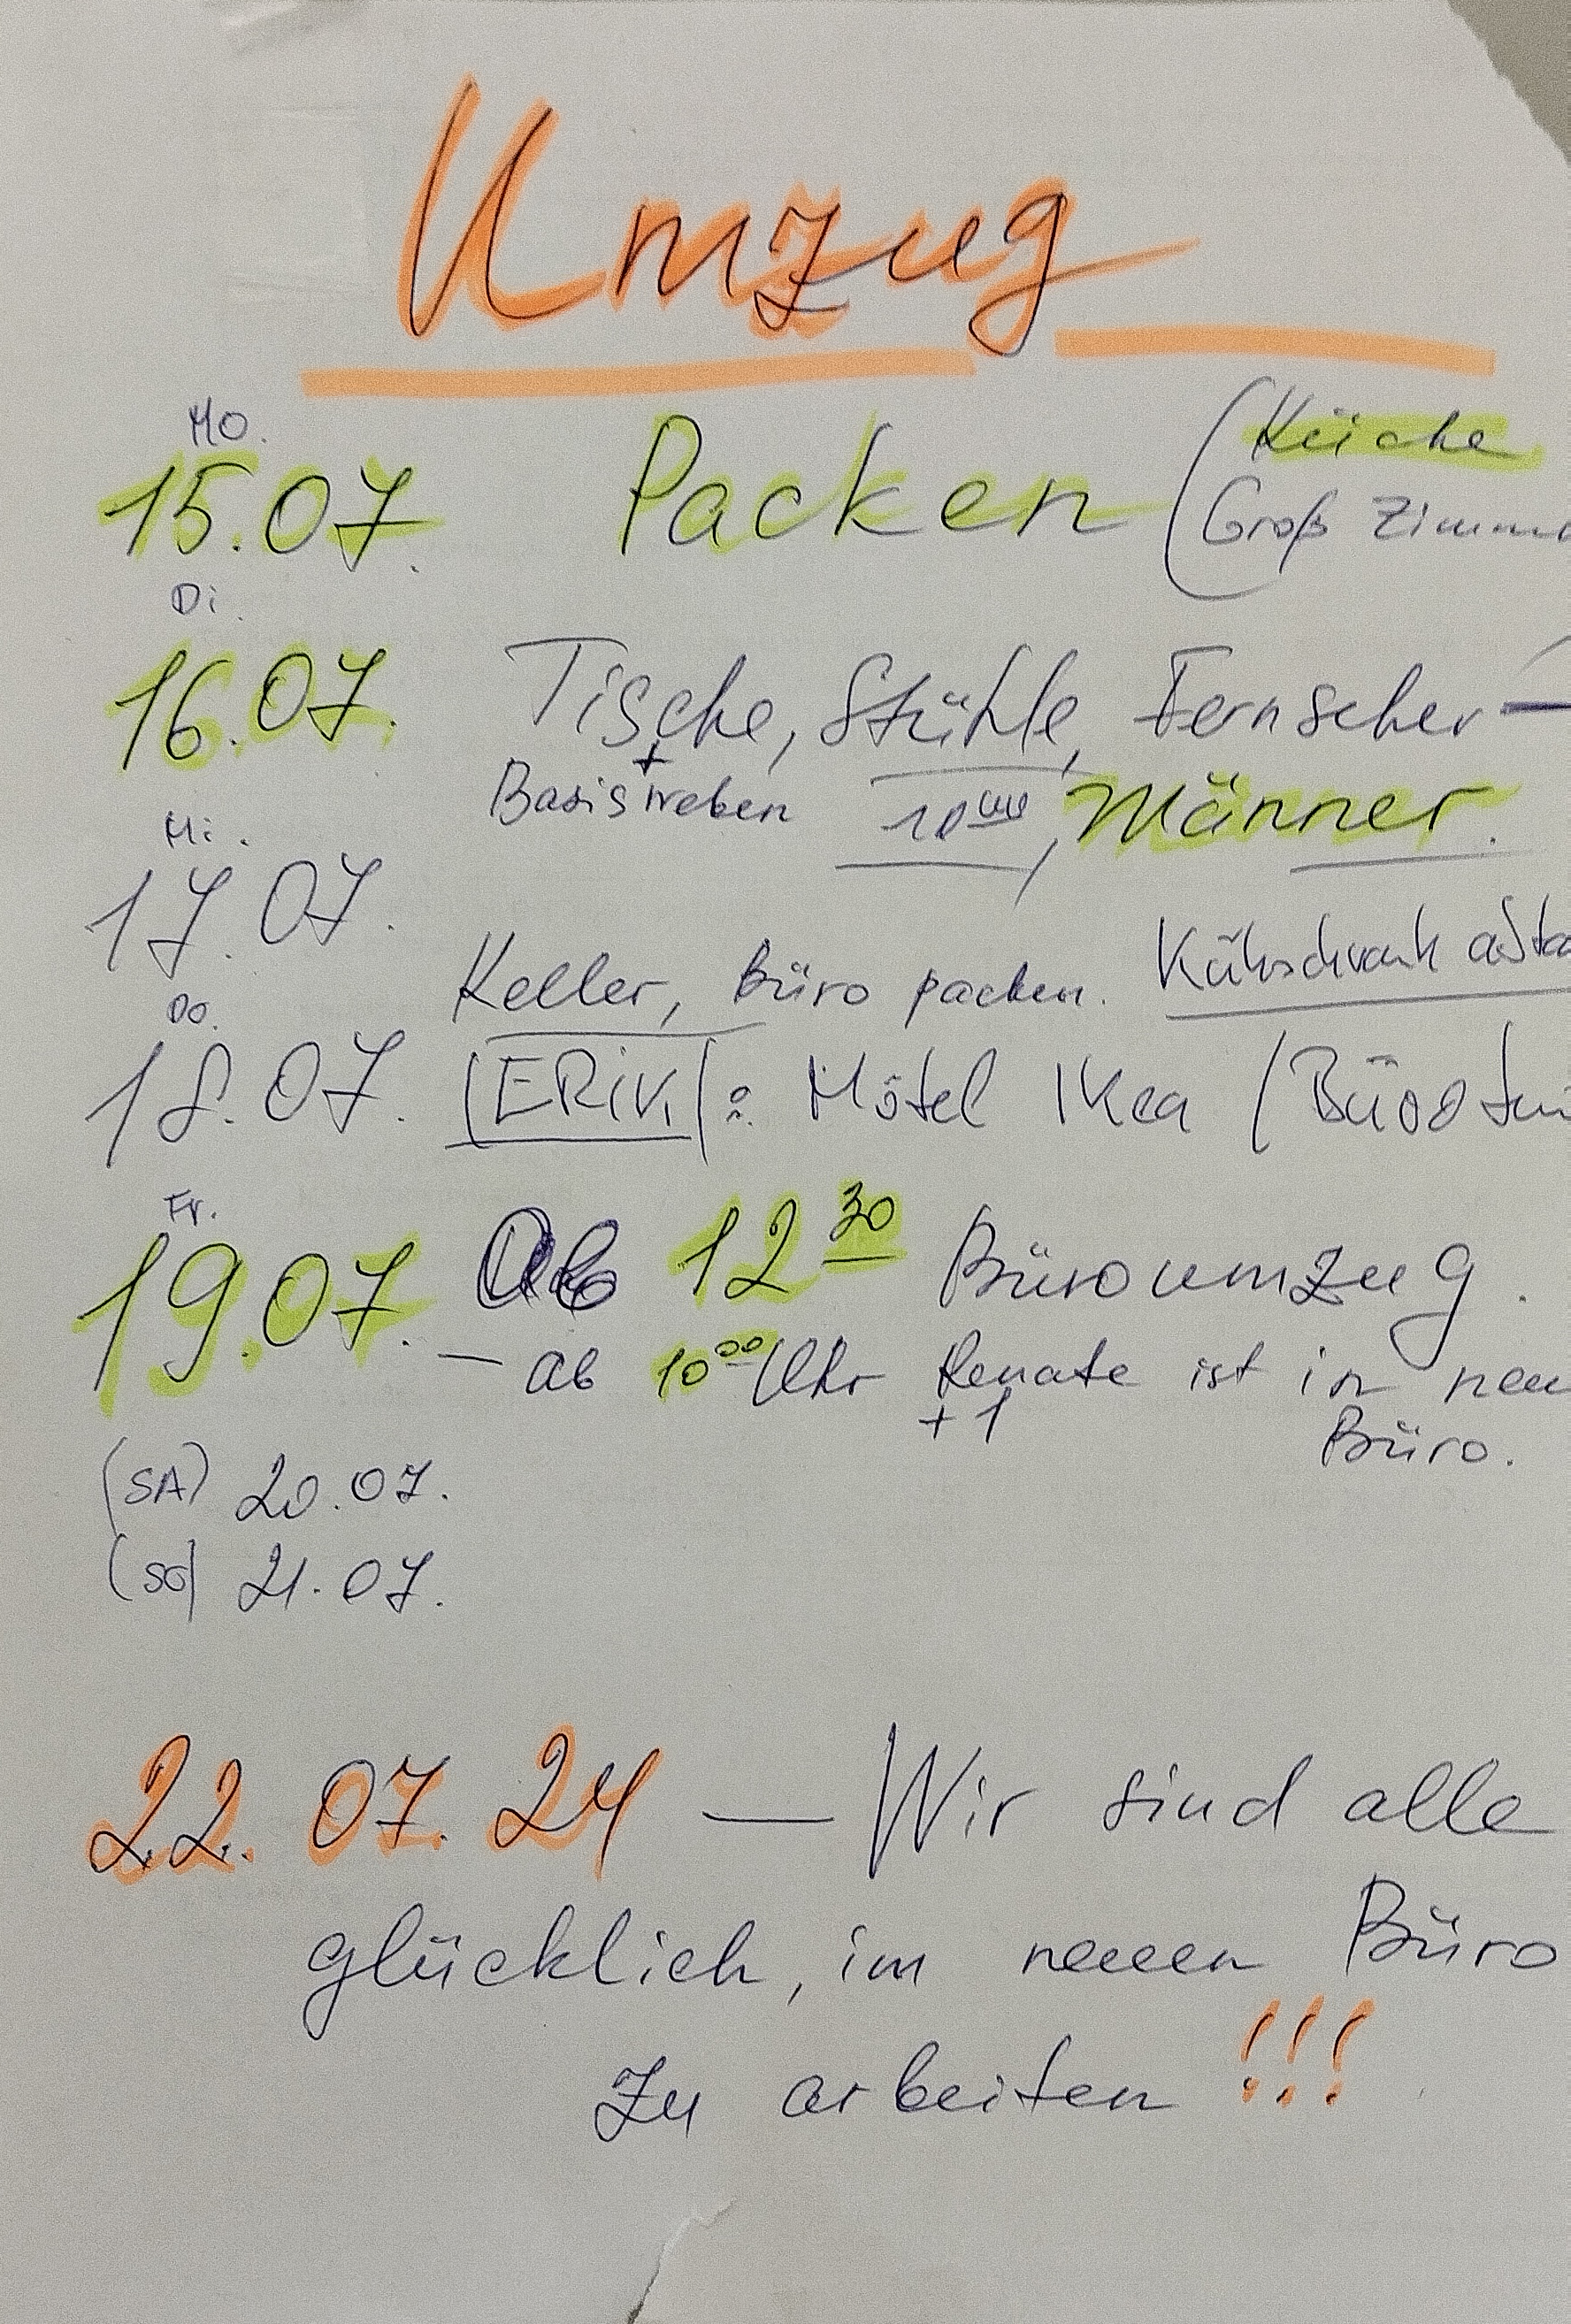 Umzug
Mo.
15.07. Packen (Küche
Groß Zimme
Di.
16.07. Tische, Stühle, Fernseher –
+
Basisweben 10⁰⁰, Männer.
Mi.
17.07.
Keller, Büro packen. Kühlschrank
Do.
18.07. (ERiK): Mötel IKea (Büro
Fr.
19.07. Ab 12³⁰ Büroumzug.
– ab 10⁰⁰ Uhr Renate ist in neu
+1 Büro.
(SA) 20.07.
(SO) 21.07.
22.07.24 — Wir sind alle
glücklich, im neuen Büro
zu arbeiten !!!